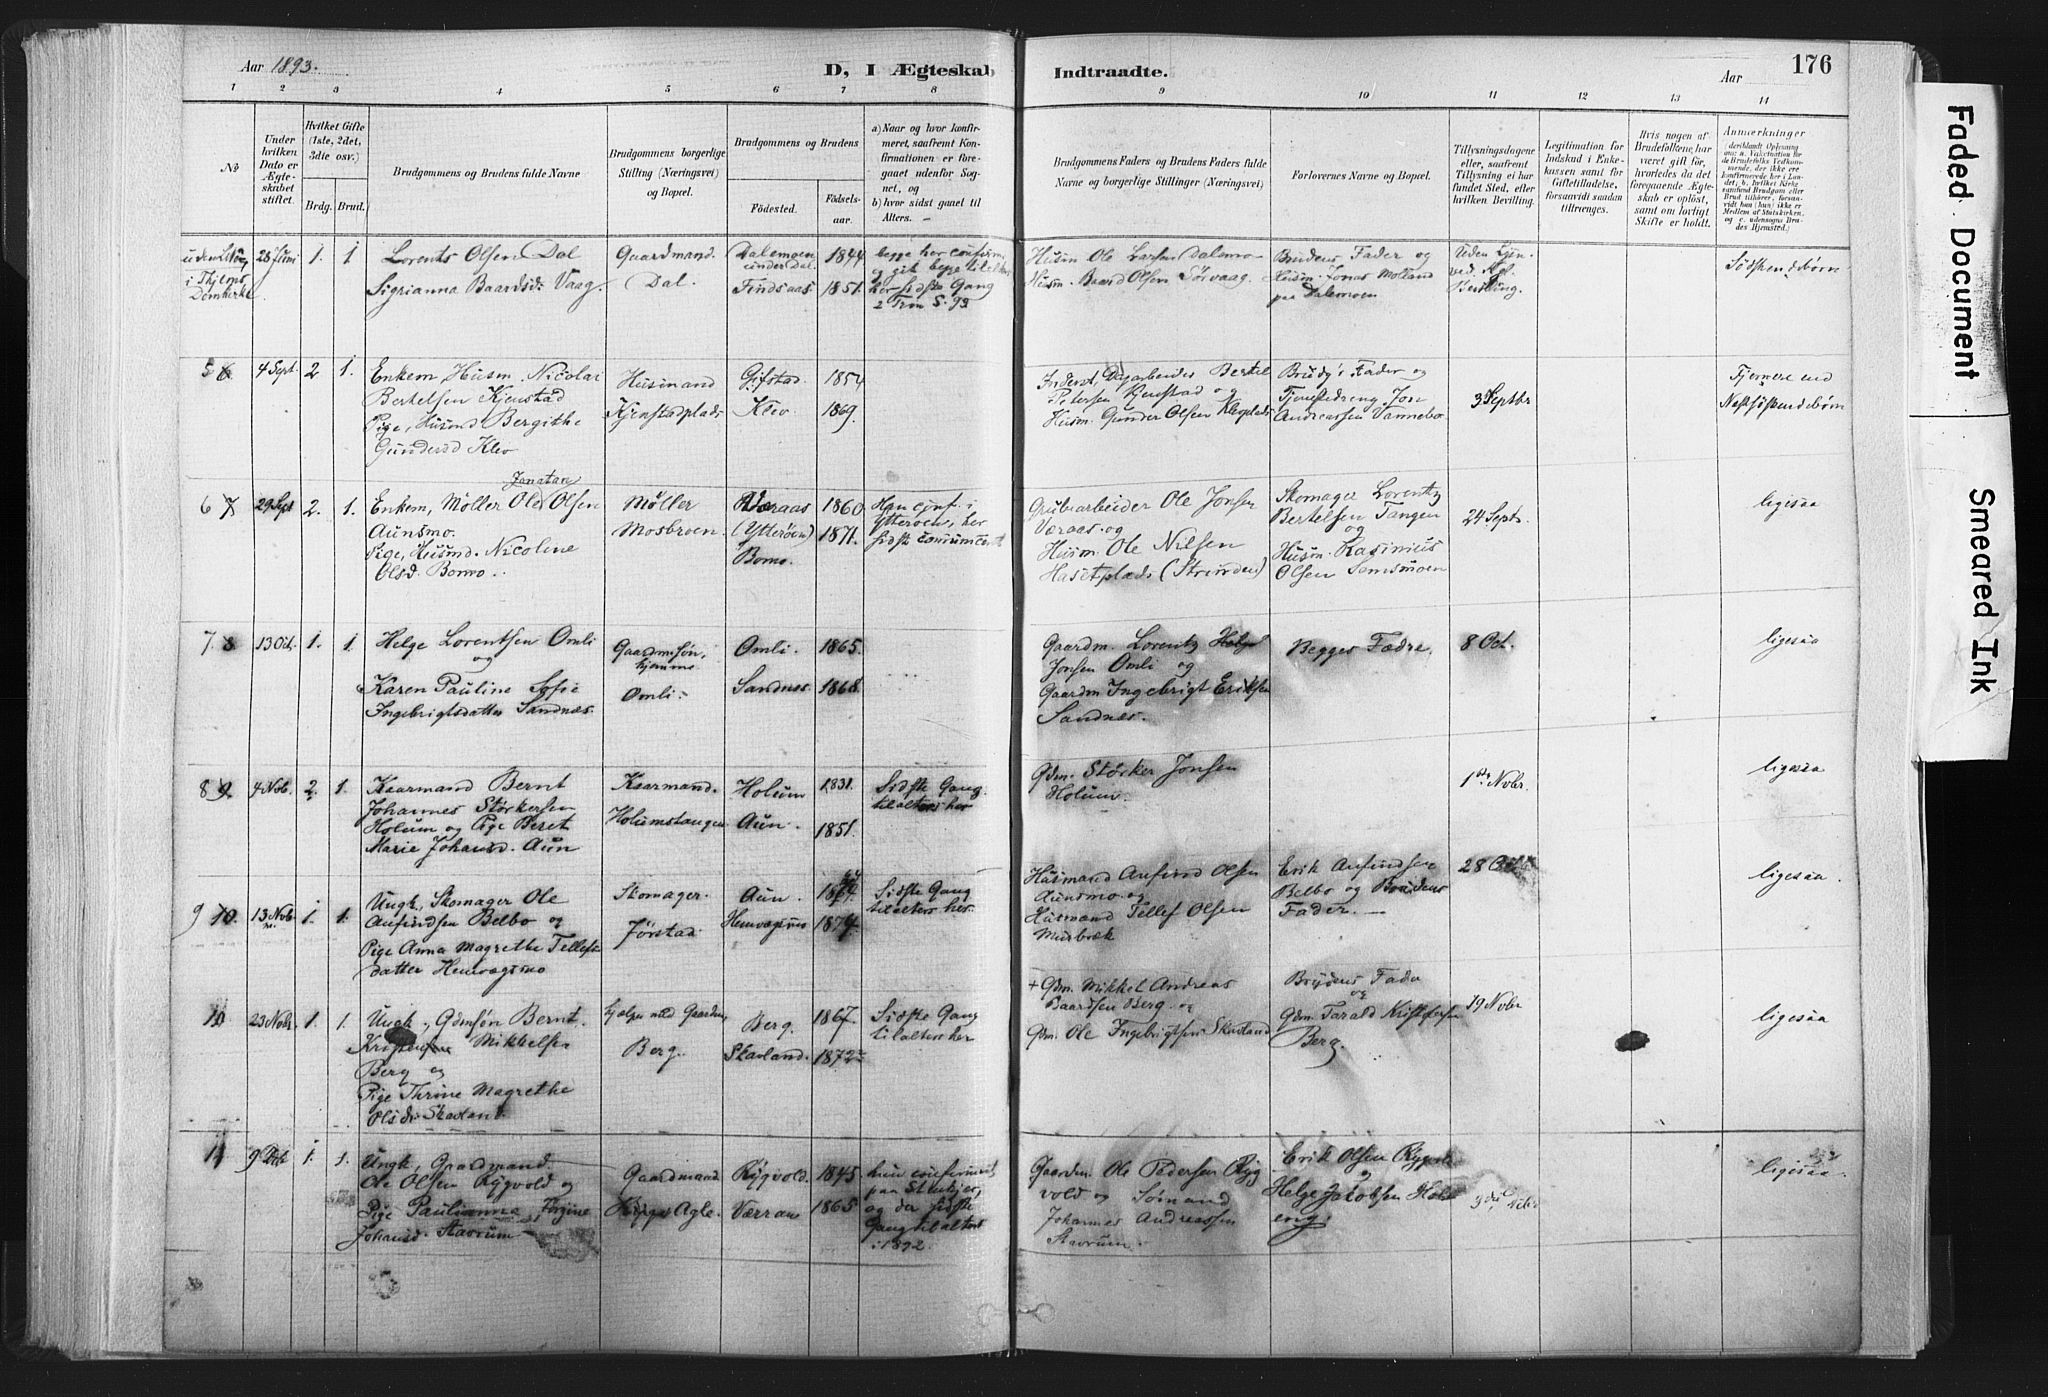 Aar 1893.
D, I Ægteskab
Indtraadte.
Aar
176
1 2 3 4 5 6 7 8 9 10 11 12 13 14
No
Under hvilken Dato er Ægteskabet stiftet.
Hvilket Gifte (1ste, 2det, 3die osv.)
Brdg. Brud.
Brudgommens og Brudens fulde Navne
Brudgommens borgerlige Stilling (Næringsvei) og Bopæl.
Brudgommens og Brudens
Fødested.
Fødselsaar.
a) Naar og hvor konfirmeret, saafremt Konfirmationen er foregaaet udenfor Sognet, og
b) hvor sidst gaaet til Alters.
Brudgommens Faders og Brudens Faders fulde Navne og borgerlige Stillinger (Næringsvei)
Forlovernes Navne og Bopæl.
Tillysningsdagene eller, saafremt Tillysning ei har fundet Sted, efter hvilken Bevilling.
Legitimation for Indskud i Enkekassen samt for Giftetilladelse, forsaavidt saadan tiltrænges.
Hvis nogen af Brudefolkene har været gift før, hvorledes da det foregaaende Ægteskab er opløst, samt om lovligt Skifte er holdt.
Anmærkninger
28 Juni 1. 1
Lorents Olsen Dal
Sigrianna Baardsdr Vaag.
Gaardmand.
Dal.
Dalemoen under Dal.
Findsaas
1844
1851.
begge her confirm.
og gik begge til alters
her sidste Gang
2 Trin S. 93
Husm Ole Larsen Dalemo
Husm. Baard Olsen Sørvaag.
Brudens Fader og
Husm. Jonas Molland
paa Dalemoen
Bevilling.
Sødskendebørn
5 4 Sept. 2 1.
Enkem, Husm. Nicolai
Bertelsen Kjenstad
Pige, Husmd Bergithe
Gundersd Klev
Husmand
Kjenstadplads
Gifstad
Klev.
1854
1869.
Petersen Kjenstad og
Husm. Gunder Olsen Klevplads
Brudg's Fader og
Andreassen Vannebo
3 Septbr
Fjernere end
Næstsødskendebørn
Jonatan
6 7 29 Sept 2. 1.
Enkem, Møller Ole Olsen
Aunsmo.
Pige, Husmd. Nicoline
Olsd. Bomo.
Møller
Mosbroen
Væraas
(Ytterøen)
Bomo.
1860
1871.
Han conf. i
Ytterøen, her
Grubearbeider Ole Jonsen
Væraas. og
Husm. Ole Nilsen
Hasetplads (Strinden)
Skomager Lorentz
Bertelsen Tangen
og
Husm. Rasimus
Olsen Semsmoen
24 Septr.
ligesaa
7. 8 13 Oct. 1. 1.
Helge Lorentsen Omli
og
Karen Pauline Sofie
Ingebrigtsdatter Sandnæs.
Gaardmsøn,
hjemme
Omli.
Omli.
Sandnæs
1865.
1868.
Gaardm. Lorentz Helge
Jonsen Omli og
Gaardm Ingebrigt Eriksen
Sandnæs.
Begges Fædre.
8 Oct.
ligesaa
8 9. 4 Nob. 2. 1.
Kaarmand Bernt
Johannes Størkersen
Holum og Pige Beret
Marie Johansd. Aun
Kaarmand.
Holumstangen
Holum
Aun.
1831.
1851.
Sidste Gang
til alters her
Gdm. Størker Jonsen
Holum.
1ste Nobr.
ligesaa
9 10. 13 Nobr 1. 1.
Ungk, Skomager Ole
Anfindsen Belbo og
Pige Anna Magrethe Tellefs
datter Hemvægsmo
Skomager.
Jørstad
Aun.
1874.
Sidste Gang
til alters her.
Husmand Anfind Olsen
Aunsmo. og
Husmand Tellef Olsen
Erik Anfindsen
Belbo og Brudens
Fader.
28 Oct
ligesaa.
10 23 Nobr 1. 1.
Ungk, Gdmsøn Bernt
Mikkelsen
Berg og
Pige Thrine Magrethe
Olsdr Skavland
Berg.
Berg.
Skavland.
1867.
1872
Sidste Gang
til alters her
+ Gdm. Mikkel Andreas
Baardsen Berg. og
Gdm. Ole Ingebrigtsen Skavland
Brudens Fader
og
Gdm Tarald Kristofersen
Berg.
19 Nobr
ligesaa
11 9 1. 1.
Ungk, Gaardmand.
Ole Olsen Rygvold og
Pige Paulianna Jørgine
Johansd. Stavrum
Gaardmand
Agle.
Rygvold.
Værran
1845
1865
hun confirmert
paa Stenkjer,
og der sidste
Gang til alters
i 1892.
Gaardm. Ole Pedersen Ryg
vold og Sømand
Johannes Andreassen
Stavrum.
Erik Olsen Rygvold
og
Helge Jakobsen Holt
eng.
ligesaa.
Faded Document
Smeared Ink